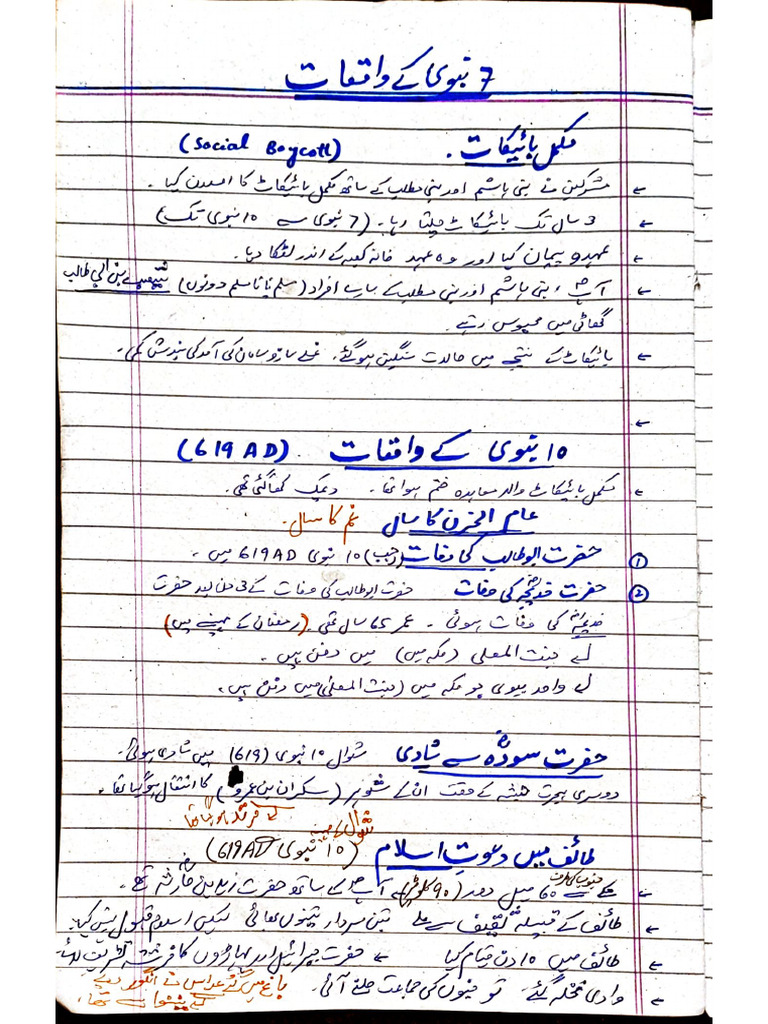 7 نبوی کے واقعات
مکمل بائیکاٹ۔ (Social Boycott)
← مشرکین نے بنی ہاشم اور بنی مطلب کے ساتھ مکمل بائیکاٹ کا اعلان کیا۔
← 3 سال تک بائیکاٹ چلتا رہا۔ (7 نبوی سے 10 نبوی تک)
عہد و پیمان کیا اور وہ عہد خانہ کعبہ کے اندر لٹکا دیا۔
← آپؐ، بنی ہاشم اور بنی مطلب کے سارے افراد (مسلم یا نا مسلم دونوں) شعب ابی طالب
گھاٹی میں محبوس رہے۔
← بائیکاٹ کے نتیجے میں حالات سنگین ہو گئے۔ غلے سازو سامان کی آمد کی بندش تھی۔
←
10 نبوی کے واقعات (619 AD)
← مکمل بائیکاٹ والا معاہدہ ختم ہوا تھا۔ دیمک کھا گئی تھی۔
عام الحزن کا سال غم کا سال۔
① حضرت ابو طالب کی وفات (رجب) 10 نبوی 619AD میں۔
② حضرت خدیجہؓ کی وفات حضرت ابو طالب کی وفات کے 3 دن بعد حضرت
خدیجہؓ کی وفات ہوئی۔ عمر 65 سال تھی (رمضان کے مہینے میں)
جنت المعلی (مکہ میں) میں دفن ہیں۔
واحد بیوی جو مکہ میں (جنت المعلی) میں دفن ہیں۔
حضرت سودہؓ سے شادی شوال 10 نبوی (619) میں شادی ہوئی۔
دوسری ہجرت حبشہ کے وقت ان کے شوہر (سکران بن عمرو) کا انتقال ہو گیا تھا۔
طائف میں دعوتِ اسلام (10 نبوی 619AD) شوال کے مہینے
60 میل دور (90 کلومیٹر) آپؐ کے ساتھ حضرت زید بن حارثہؓ تھے۔
← طائف کے قبیلہ ثقیف سے ملے تین سردار تینوں بھائی لیکن اسلام قبول نہیں کیا۔
← طائف میں 10 دن قیام کیا ← حضرت جبرائیل اور پہاڑوں کا فرشتہ تشریف لائے۔
← وادی نخلہ گئے۔ تو جنوں کی جماعت ملنے آئی۔ باغ میں گئے عداس نے انگور دیے
نینوا سے تھا۔